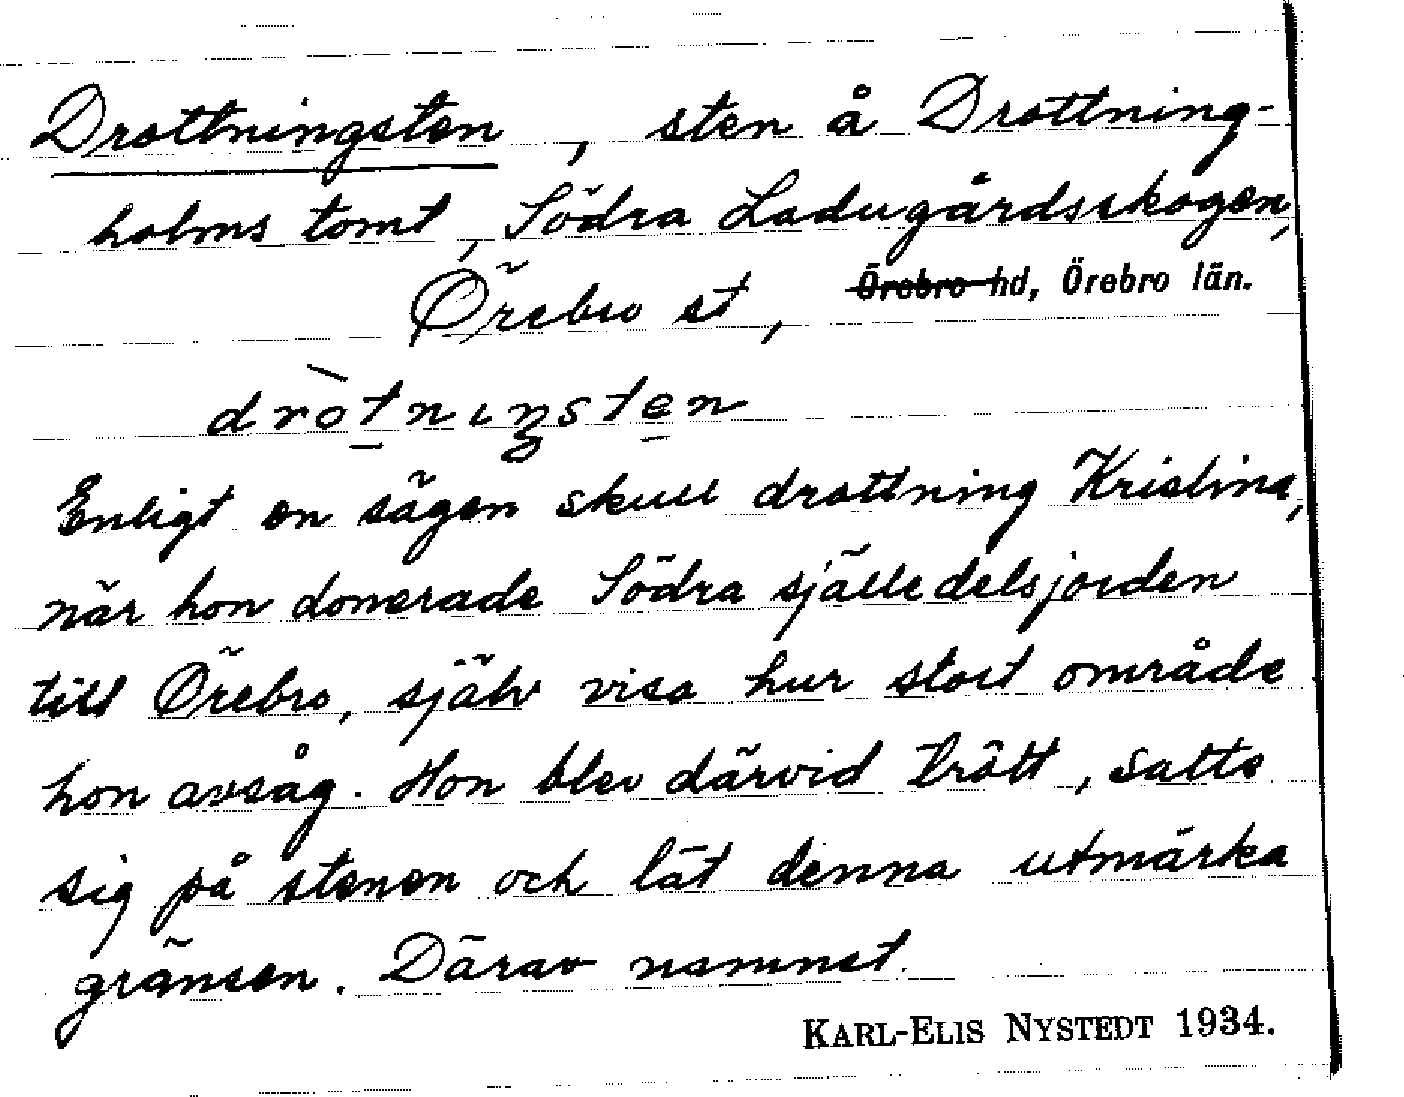 Drottningsten, sten å Drottning-
holms tomt, Södra Ladugårdsskogen,
Örebro st, Örebro hd, Örebro län.
dròtnıŋsten
Enligt en sägen skull drottning Kristina,
när hon donerade Södra själledelsjorden
till Örebro, själv visa hur stort område
hon avsåg. Hon blev därvid trött, satte
sig på stenen och lät denna utmärka
gränsen. Därav namnet.
KARL-ELIS NYSTEDT 1934.